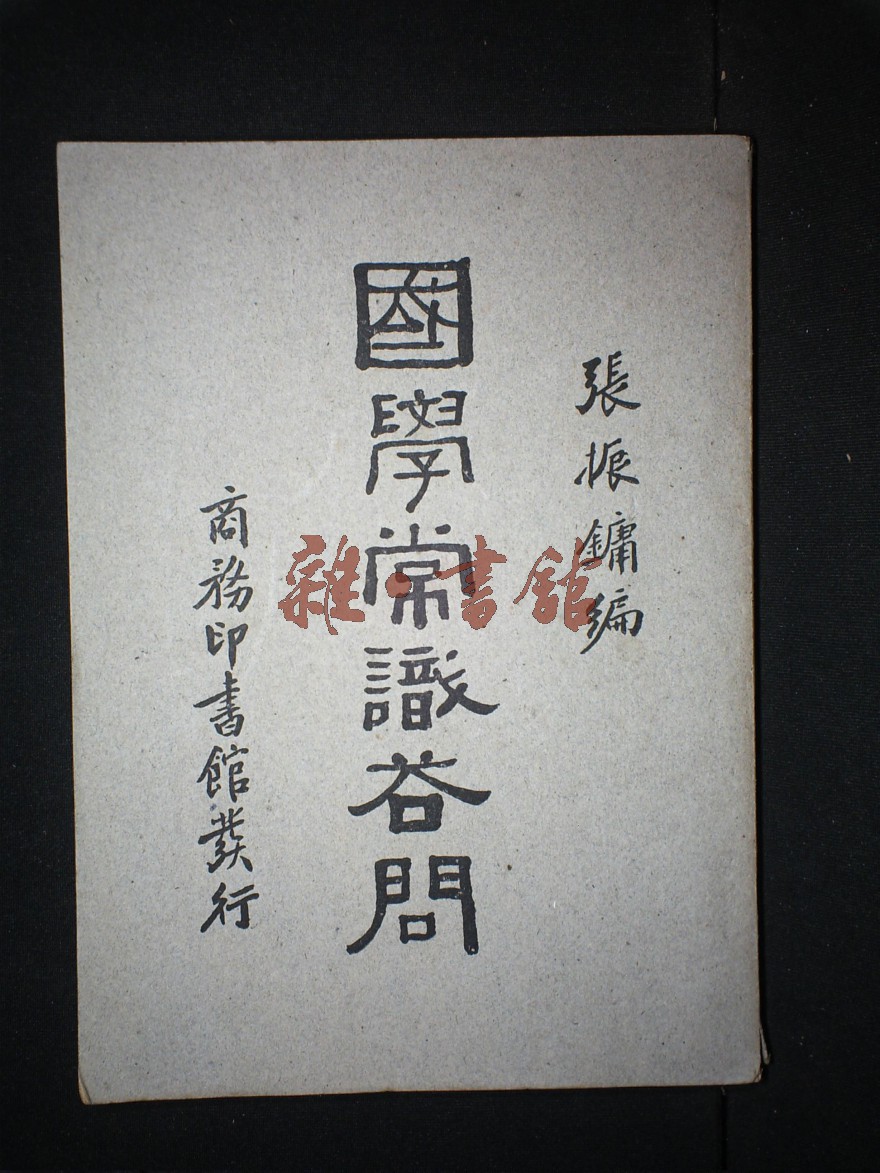 張振鏞編
國學常識答問
商務印書館發行
雜·書館